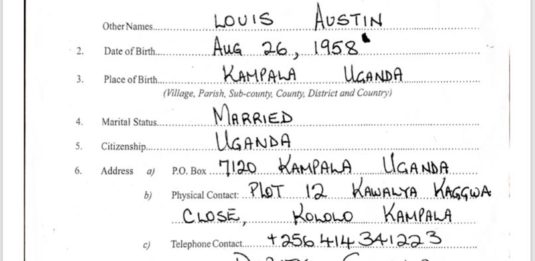 Other Names LOUIS AUSTIN
2. Date of Birth AUG 26, 1958
3. Place of Birth KAMPALA UGANDA
(Village, Parish, Sub-county, County, District and Country)
4. Marital Status MARRIED
5. Citizenship UGANDA
6. Address a) P.O. Box 7120 KAMPALA UGANDA
b) Physical Contact: PLOT 12 KAWALYA KAGGWA
CLOSE, KOLOLO KAMPALA
c) Telephone Contact +256 414 341223